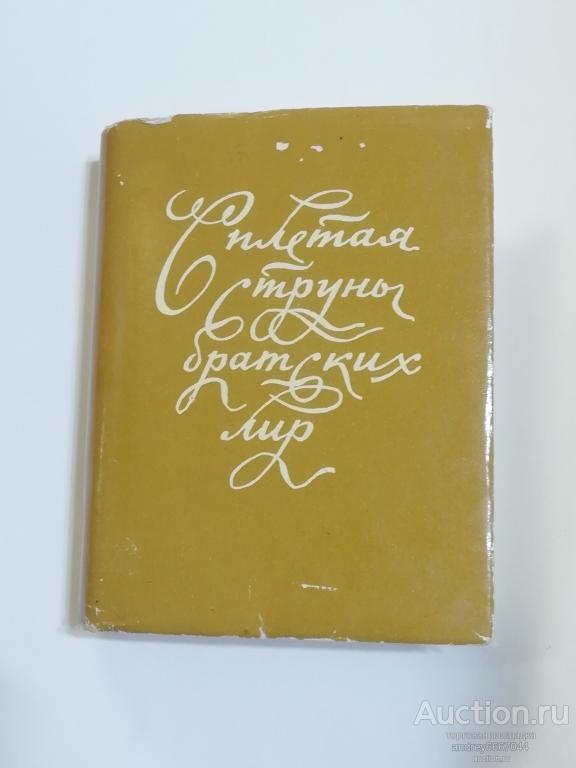 Сплетая
струны
братских
лир
Auction.ru
торговая площадка
andrey6667044
auction.ru